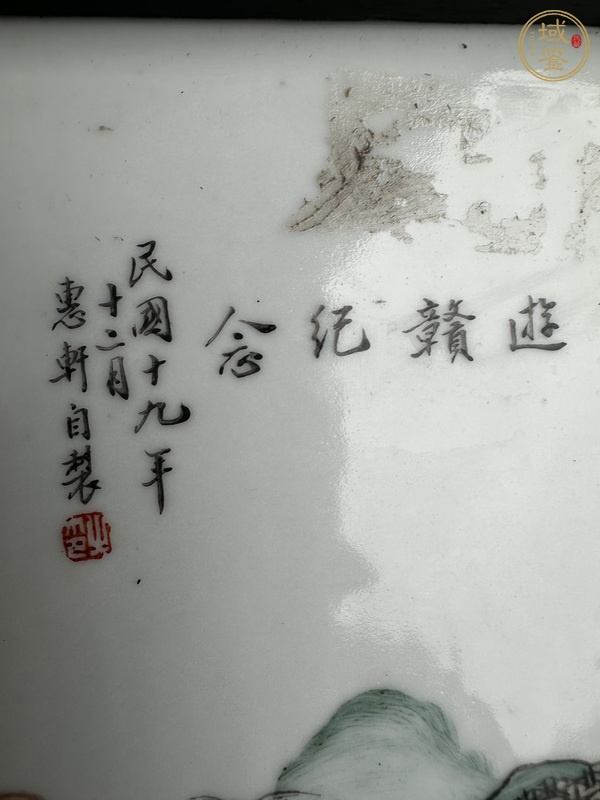 域鉴
遊贛紀念
民國十九年
十二月
惠軒自製